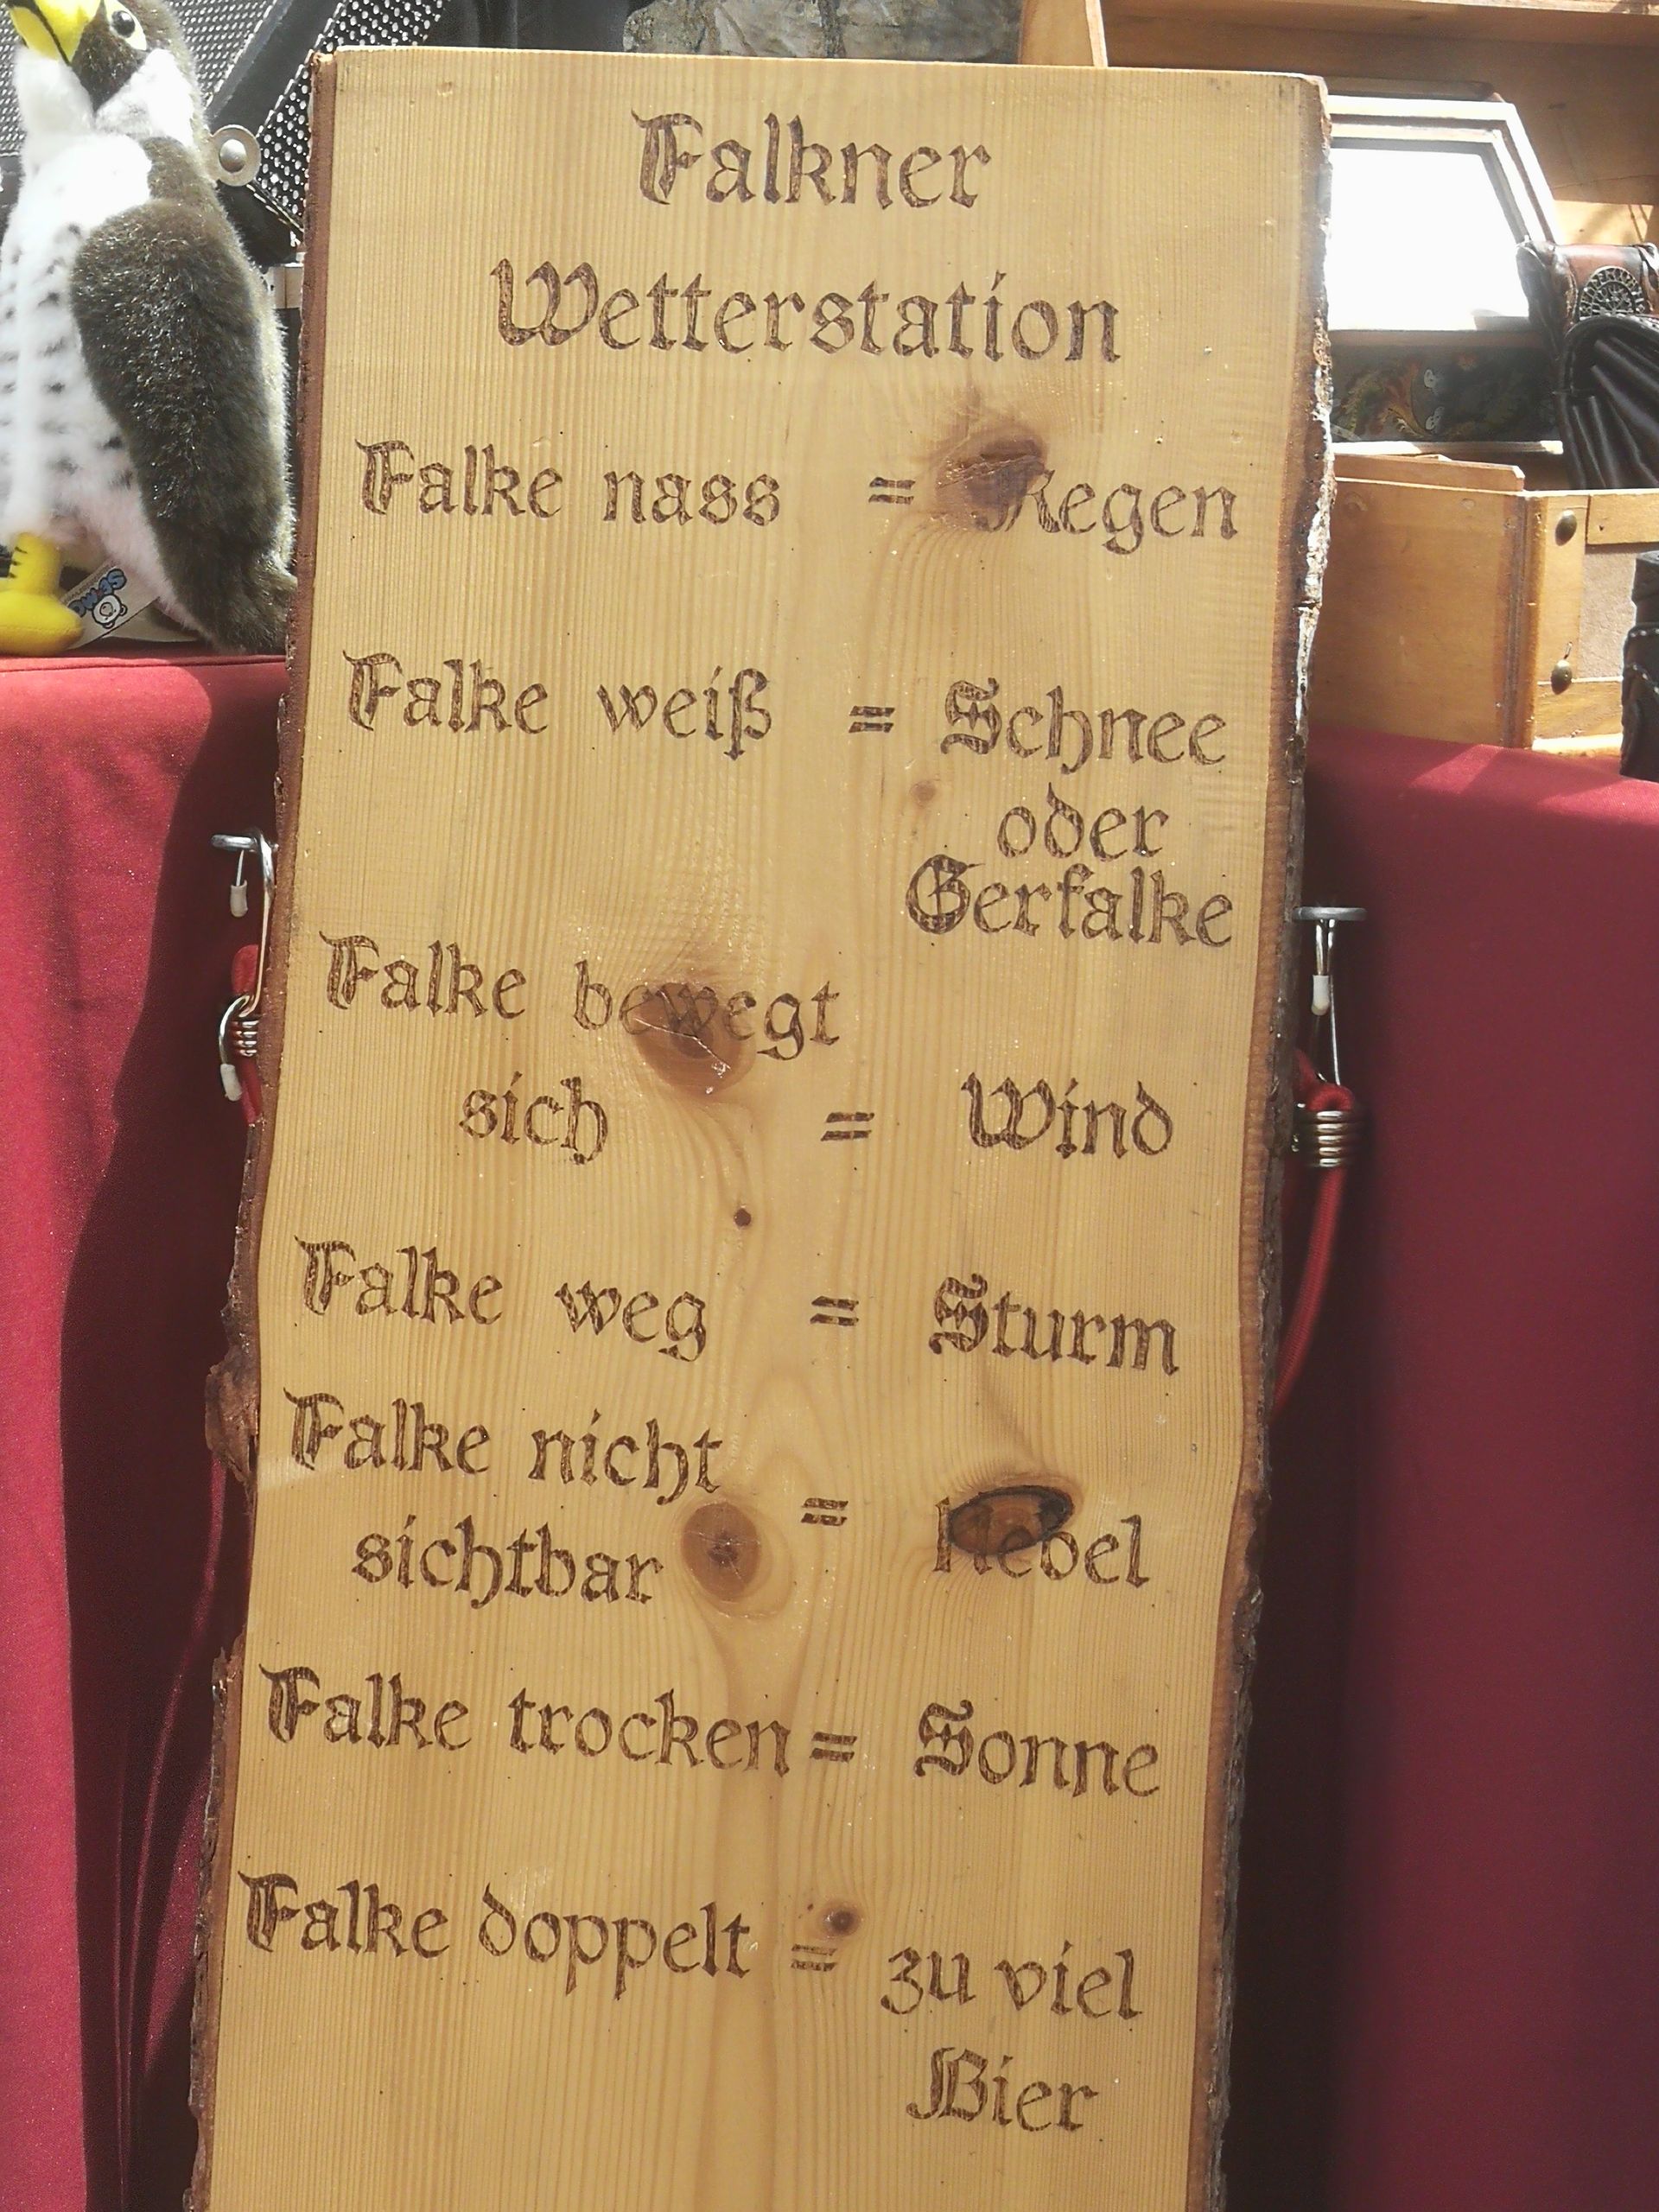 Falkner
Wetterstation
Falke nass = Regen
Falke weiß = Schnee
oder
Gerfalke
Falke bewegt
sich = Wind
Falke weg = Sturm
Falke nicht
sichtbar = Nebel
Falke trocken = Sonne
Falke doppelt = zu viel
Bier